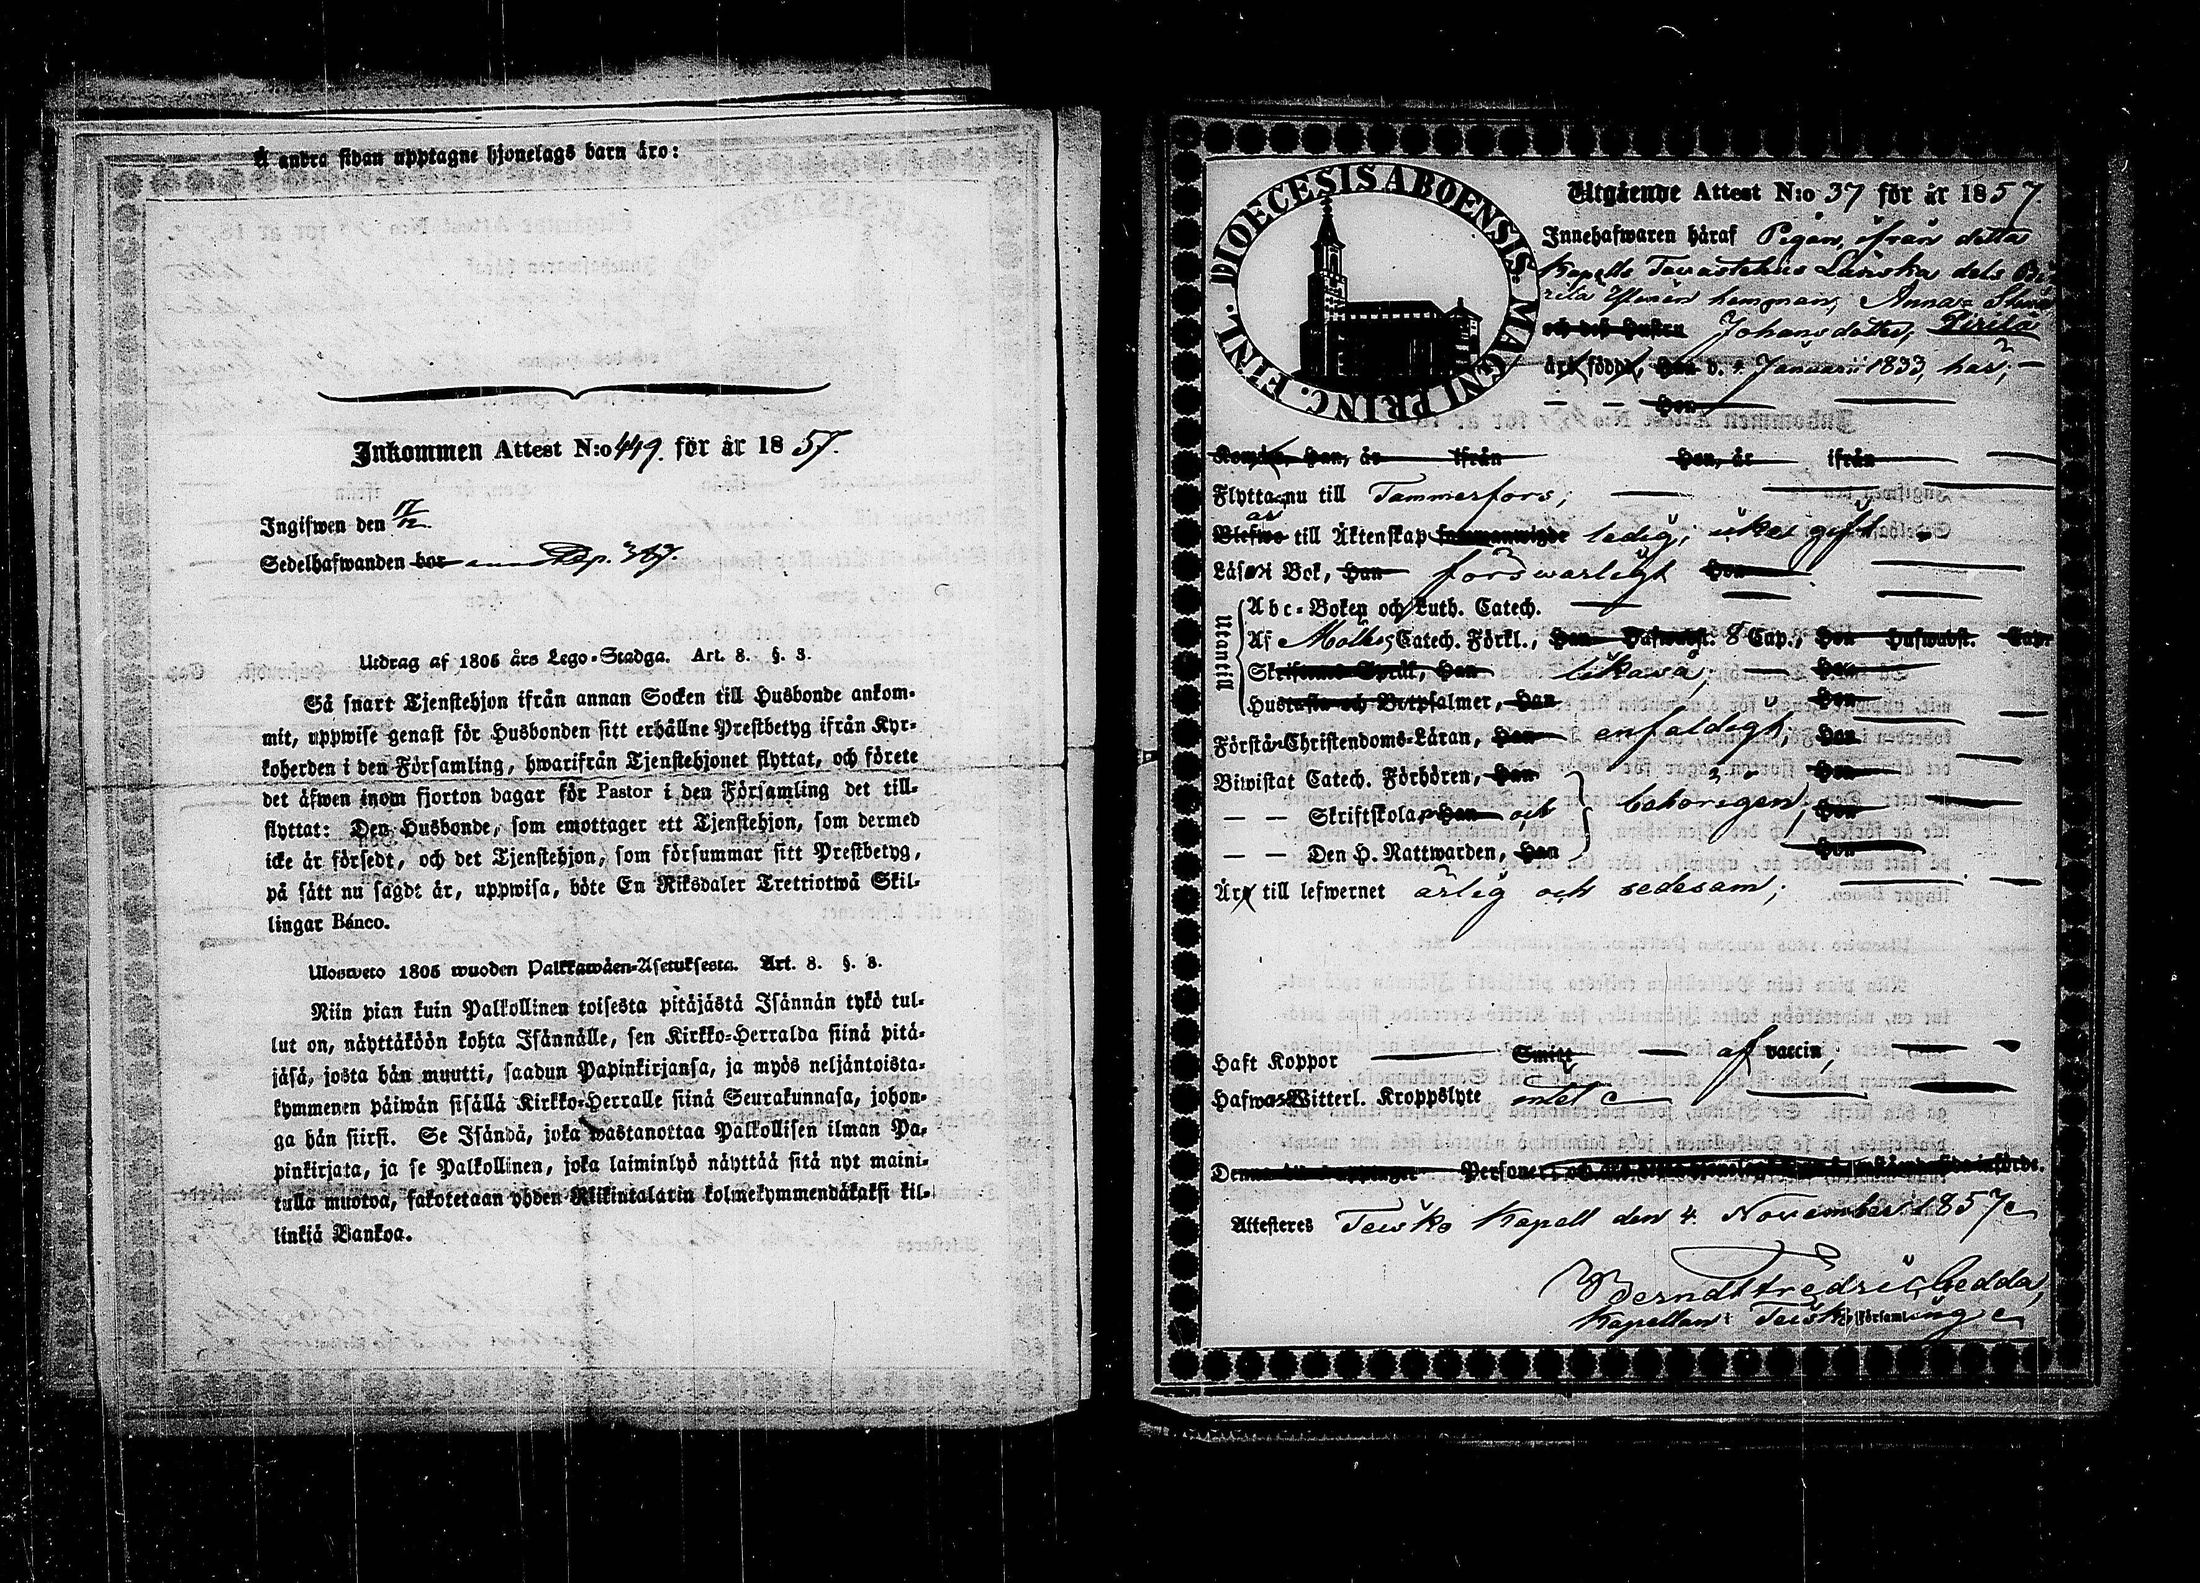 Å andra sidan upptagne hjonelags barn äro:
Inkommen Attest N:o 449. för år 1857.
Ingifwen den 17/12.
Sedelhafwanden bor pag. 367.
Utdrag af 1805 års Lego-Stadga. Art. 8. §. 3.
Så snart Tjenstehjon ifrån annan Socken till Husbonde ankom-
mit, uppwise genast för Husbonden sitt erhållne Prestbetyg ifrån Kyr-
koherden i den Församling, hwarifrån Tjenstehjonet flyttat, och förete
det äfwen inom fjorton dagar för Pastor i den Församling det till-
flyttat: Den Husbonde, som emottager ett Tjenstehjon, som dermed
icke är försedt, och det Tjenstehjon, som försummar sitt Prestbetyg,
på sätt nu sagdt är, uppwisa, böte En Riksdaler Trettiotwå Skil-
lingar Banco.
Ulosweto 1805 wuoden Palkkawäen-Asetuksesta. Art. 8. §. 3.
Niin pian kuin Palkollinen toisesta pitäjästä Isännän tykö tul-
lut on, näyttäköön kohta Isännälle, sen Kirkko-Herralda siinä pitä-
jäsä, josta hän muutti, saadun Papinkirjansa, ja myös neljäntoista-
kymmenen päiwän sisällä Kirkko-Herralle siinä Seurakunnasa, johon-
ga hän siirsi. Se Isändä, joka wastanottaa Palkollisen ilman Pa-
pinkirjata, ja se Palkollinen, joka laiminlyö näyttää sitä nyt maini-
tulla muotoa, sakotetaan yhden Riikintalarin kolmekymmendäkaksi kil-
linkiä Bankoa.
DIOECESIS ABOENSIS. MAGNI PRINC. FINL.
Utgående Attest N:o 37 för år 1857.
Innehafwaren häraf Pigan, ifrån detta
Kapells Tavastehus Länska dels Pi-
rilä Yterén hemman, Anna Stina
och dess Hustru Johansdotter, Pirilä
äro födde, Han d. 4. Januarii 1833, har, —
Hon
Komne, Han, år ifrån Hon, år ifrån
Flyttar nu till Tammerfors;
är
Blefwo till Äktenskap sammanwigde ledig, icke gift
Läser i Bok, Han förswarligt Hon
Utantill
Abc-Boken och Luth. Catech.
Af Catech. Förkl., Han Hufwudst. 8 Cap., Hon Hufwudst. Cap.
Skriftenes Språk, Han likaså, Hon
Hustafla och Botpsalmer, Han Hon
Förstår Christendoms-Läran, Han enfaldigt; Hon
Biwistat Catech. Förhören, Han Hon
— — Skriftskolan Han och behörigen, Hon
— — Den H. Nattwarden, Han Hon
Äro till lefwernet ärlig och sedesam;
Haft Koppor Smitt af vaccin,
Hafwa Witterl. Kroppslyte intet
Personer
Attesteres Teisko Kapell den 4. November 1857
Berndt Fredric Gedda,
Kapellan i Teisko församling